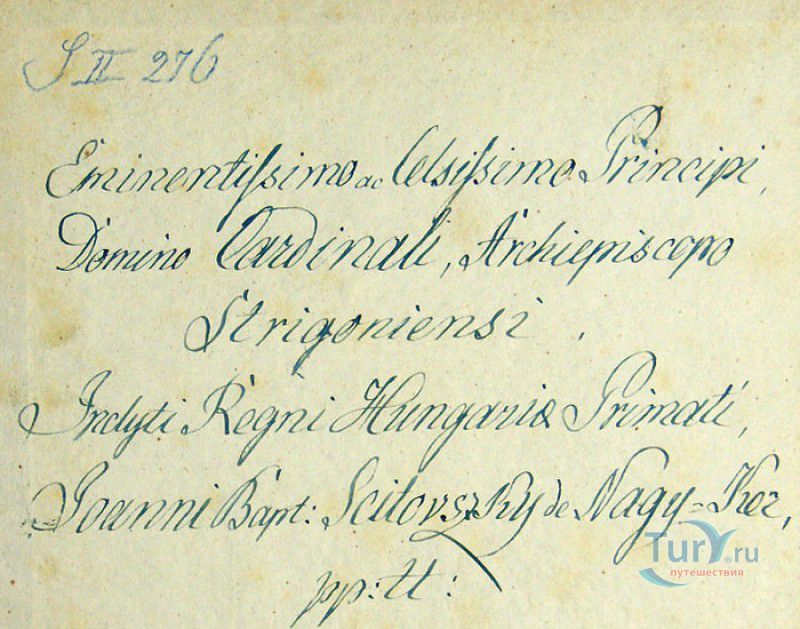 S II 276
Eminentissimo ac Celsissimo Principi,
Domino Cardinali, Archiepiscopo
Strigoniensi.
Inclyti Regni Hungariæ Primati,
Joanni Bapt: Scitovszky de Nagy=Kér,
pp: tt:
Tury.ru
путешествия